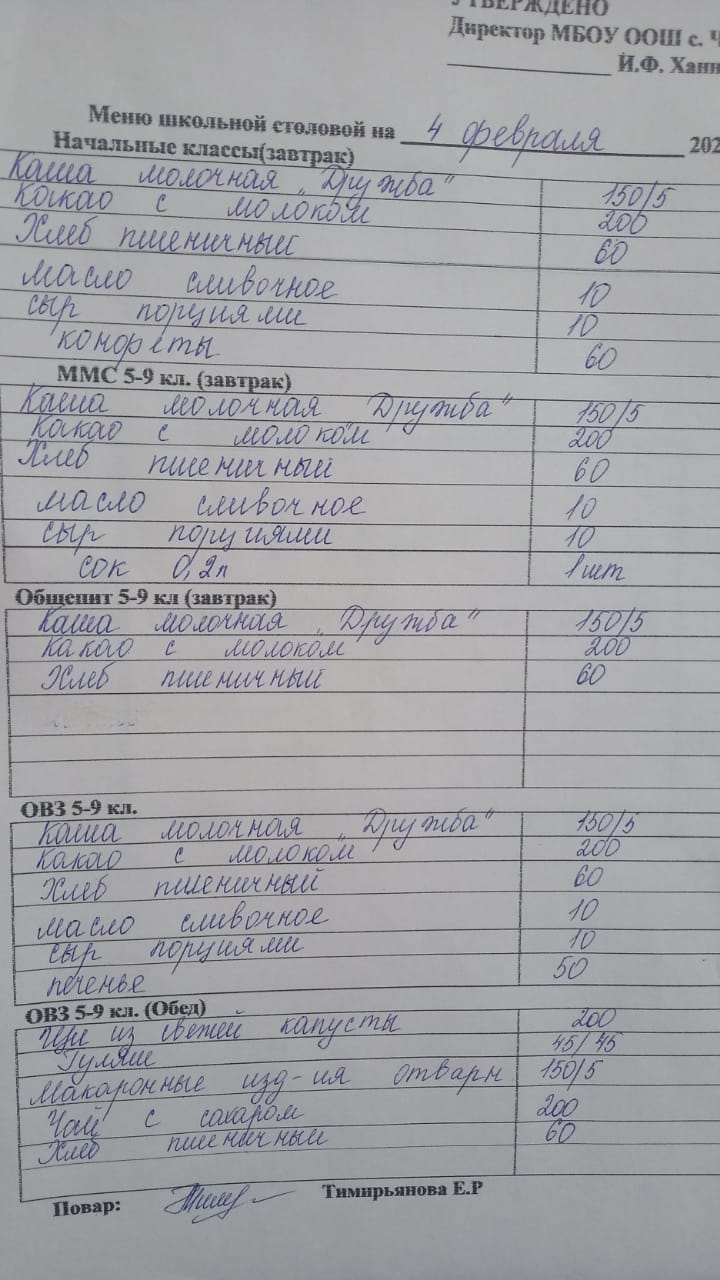 УТВЕРЖДЕНО
Директор МБОУ ООШ с. Ч
И.Ф. Ханн
Меню школьной столовой на 4 февраля 202
Начальные классы(завтрак)
Каша молочная „Дружба" 150/5
Какао с молоком 200
Хлеб пшеничный 60
масло сливочное 10
сыр порциями 10
конфеты 60
ММС 5-9 кл. (завтрак)
Каша молочная Дружба" 150/5
Какао с молоком 200
Хлеб пшеничный 60
масло сливочное 10
сыр порциями 10
сок 0,2л 1шт
Общепит 5-9 кл (завтрак)
Каша молочная „Дружба" 150/5
Какао с молоком 200
Хлеб пшеничный 60
ОВЗ 5-9 кл.
Каша молочная „Дружба" 150/5
Какао с молоком 200
Хлеб пшеничный 60
масло сливочное 10
сыр порциями 10
печенье 50
ОВЗ 5-9 кл. (Обед)
Щи из свежей капусты 200
Гуляш 45/45
Макаронные изд-ия отварн 150/5
Чай с сахаром 200
Хлеб пшеничный 60
Повар: Тимирьянова Е.Р